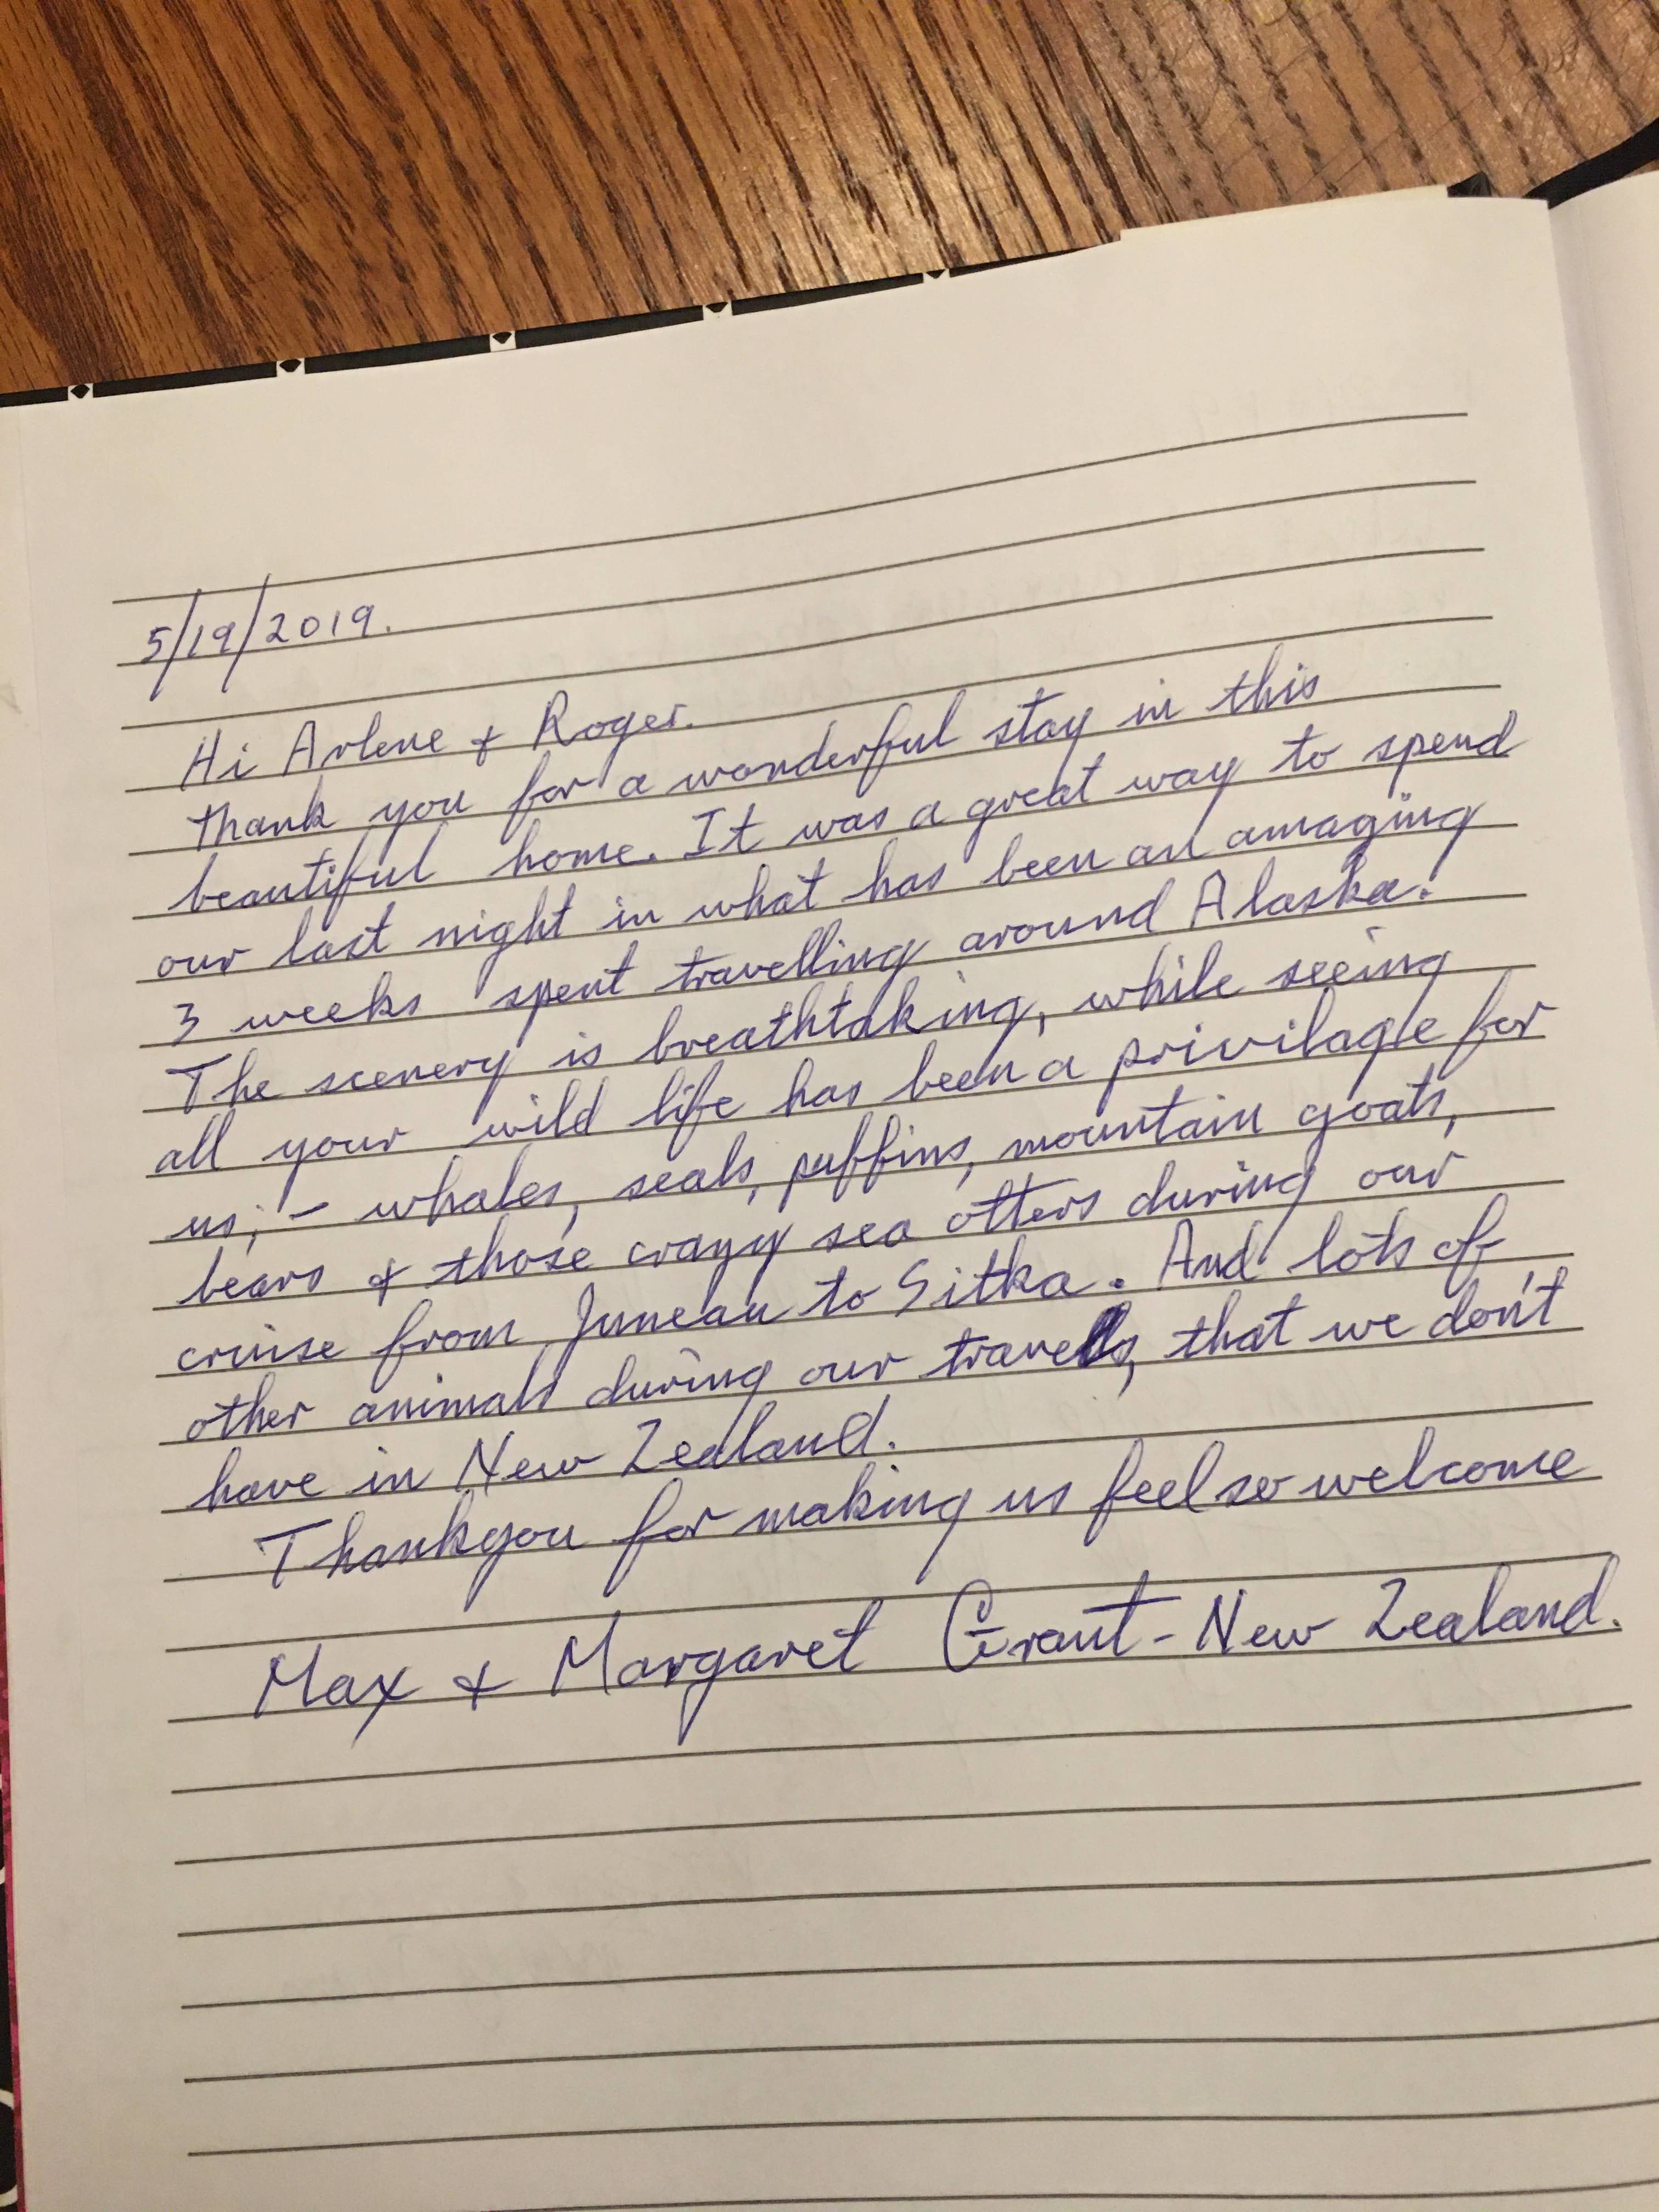 5/19/2019.
Hi Arlene & Roger.
Thank you for a wonderful stay in this
beautiful home. It was a great way to spend
our last night in what has been an amazing
3 weeks spent travelling around Alaska.
The scenery is breathtaking, while seeing
all your wild life has been a privilage for
us; - whales, seals, puffins, mountain goats,
bears & those crazy sea otters during our
cruise from Juneau to Sitka. And lots of
other animals during our travels, that we don't
have in New Zealand.
Thankyou for making us feel so welcome
Max & Margaret Grant - New Zealand.